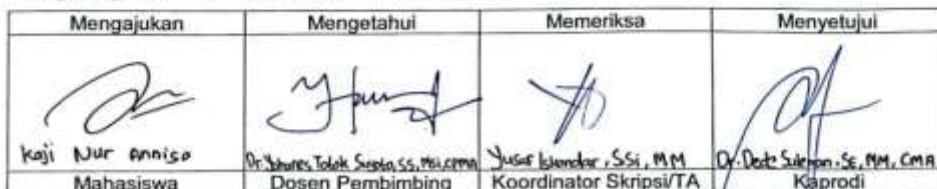 Mengajukan Mengetahui Memeriksa Menyetujui
Kaji Nur Annisa Dr. Yohanes Totok Suyoto, SS, MSi, CPMA Yusuf Iskandar, SSi, MM Dr. Dede Suleman, SE, MM, CMA
Mahasiswa Dosen Pembimbing Koordinator Skripsi/TA Kaprodi